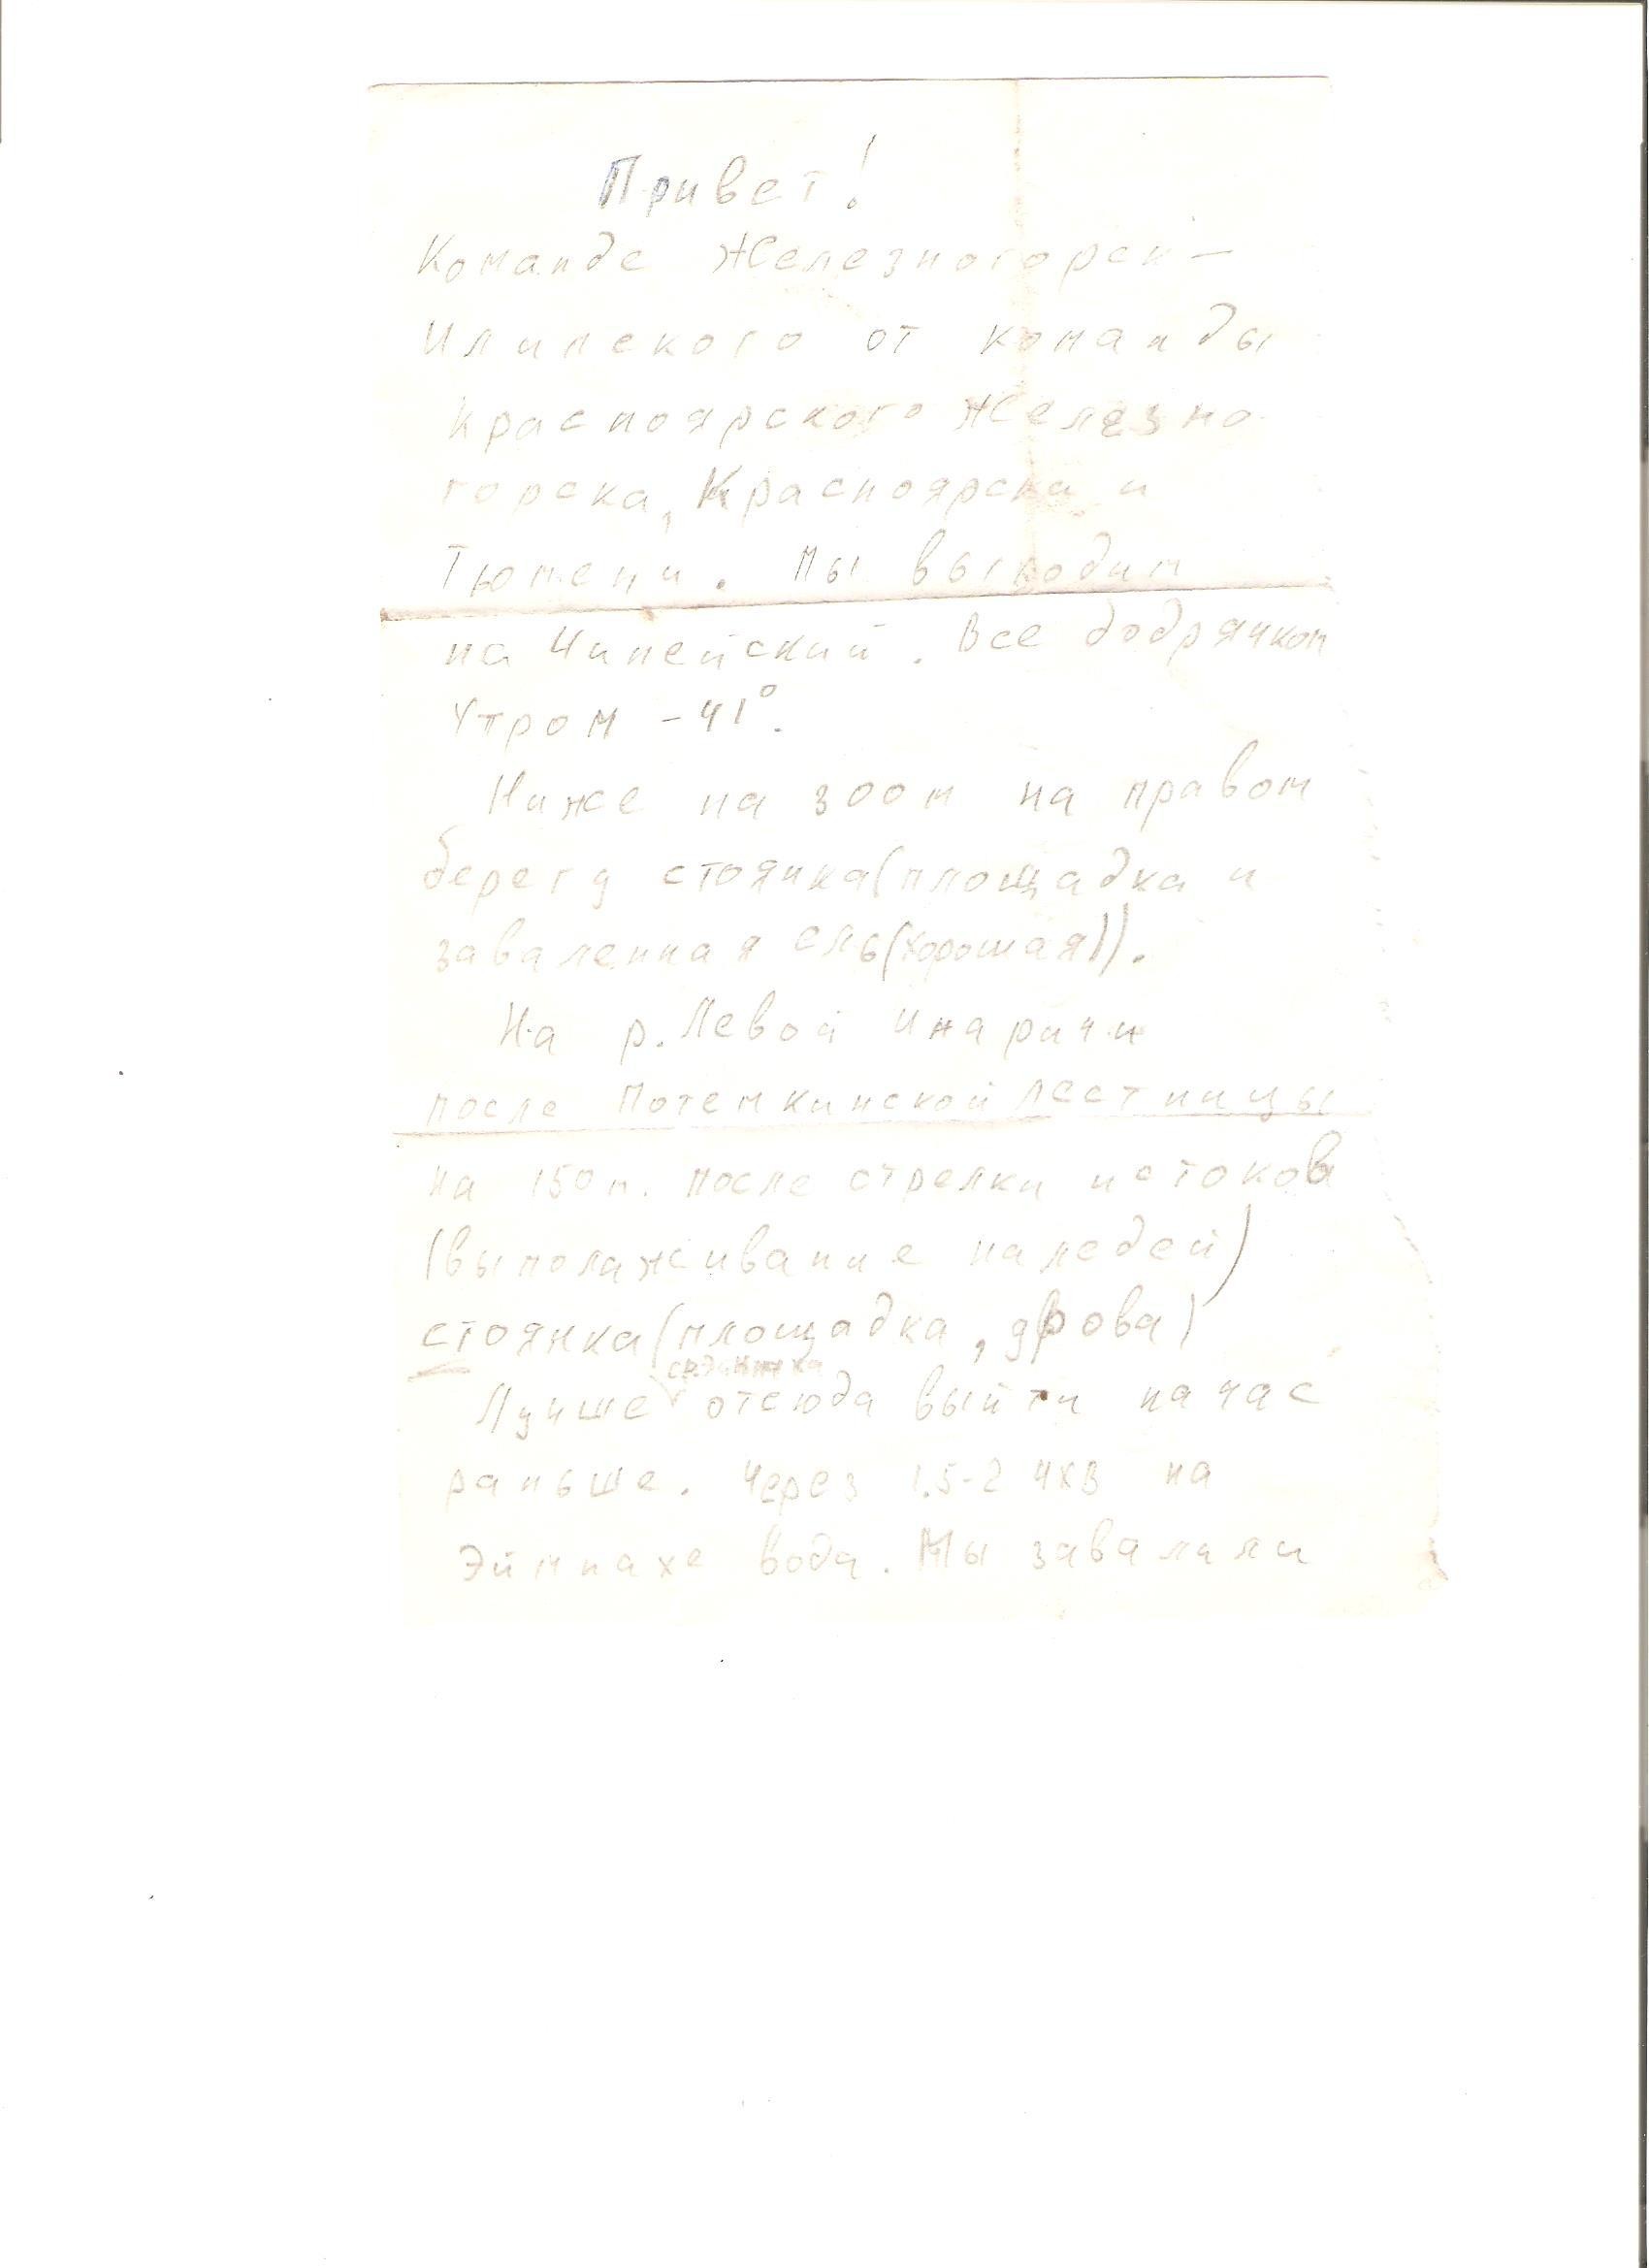 Привет!
Команде Железногорск-
Илимского от команды
Красноярского Железно-
горска, Красноярска и
Тюмени. Мы выходим
на Чипейский. Все добрячком
Утром -41°.
Ниже на 300м на правом
берегу стоянка(площадка и
заваленная ель(хорошая)).
На р. Левой Инаричи
после Потемкинской лестницы
на 150м. после стрелки истоков
(выполаживание наледей)
стоянка(площадка, дрова)
Лучше отсюда выйти на час
раньше. Через 1.5-2 ЧХВ на
Эймнахе вода. Мы завалили